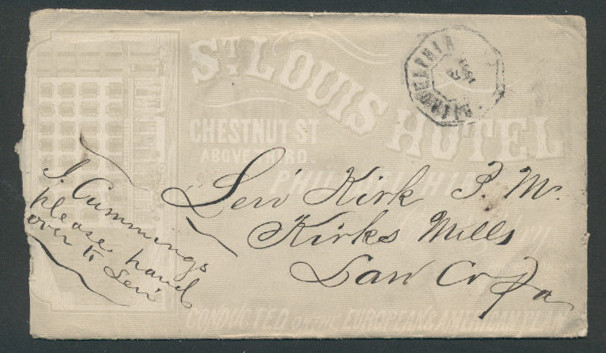 ST LOUIS
HOTEL
CHESTNUT ST
ABOVE THIRD
PHIL
Levi Kirk P. M.
Kirks Mills
Lan Co Pa
J. Cummings
please hand
over to Levi
CONDUCTED ON THE EUROPEAN & AMERICAN PLAN